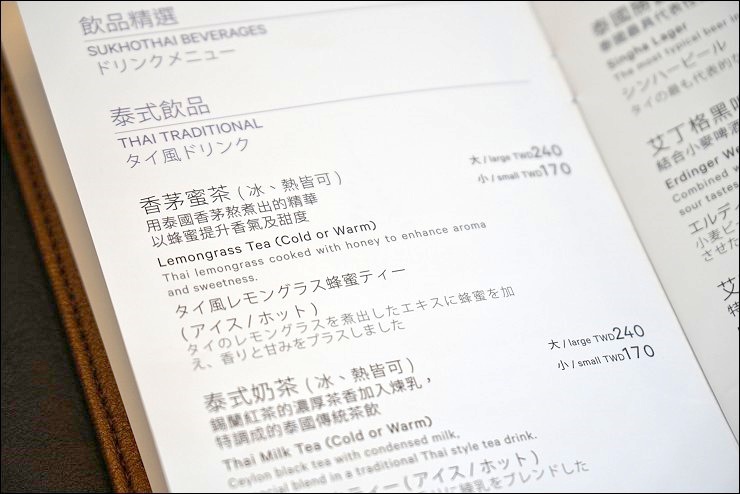 飲品精選
SUKHOTHAI BEVERAGES
ドリンクメニュー
泰式飲品
THAI TRADITIONAL
タイ風ドリンク
香茅蜜茶 (冰、熱皆可)
大 / large TWD240
小 / small TWD170
用泰國香茅熬煮出的精華
以蜂蜜提升香氣及甜度
Lemongrass Tea (Cold or Warm)
Thai lemongrass cooked with honey to enhance aroma
and sweetness.
タイ風レモングラス蜂蜜ティー
(アイス / ホット)
タイのレモングラスを煮出したエキスに蜂蜜を加
え、香りと甘みをプラスしました
泰式奶茶 (冰、熱皆可)
大 / large TWD240
小 / small TWD170
錫蘭紅茶的濃厚茶香加入煉乳，
特調成的泰國傳統茶飲
Thai Milk Tea (Cold or Warm)
Ceylon black tea with condensed milk,
blend in a traditional Thai style tea drink.
ティー (アイス / ホット)
に練乳をブレンドした
泰國
泰國最具代表性
Singha Lager
The most typical beer in
シンハービール
タイの最も代表的な
艾丁格黑啤
結合小麥啤酒
Erdinger We
Combined w
sour tastes
エルディ
小麦ビー
させた
艾
特